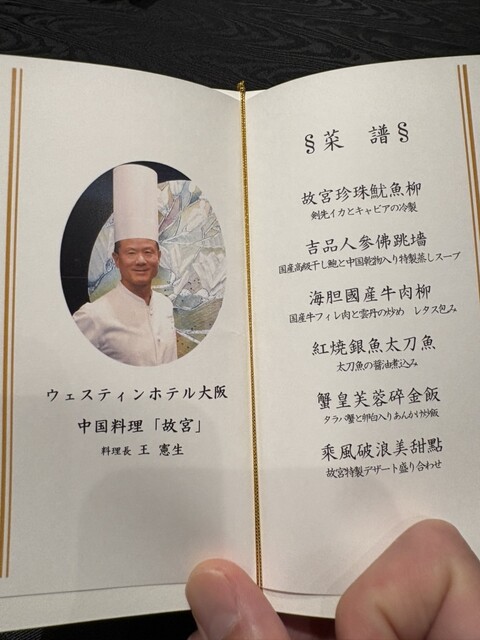 ウェスティンホテル大阪
中国料理「故宮」
料理長 王 憲生
§菜 譜§
故宮珍珠魷魚柳
剣先イカとキャビアの冷製
吉品人參佛跳墻
国産高級干し鮑と中国乾物入り特製蒸しスープ
海胆國産牛肉柳
国産牛フィレ肉と雲丹の炒め レタス包み
紅焼銀魚太刀魚
太刀魚の醤油煮込み
蟹皇芙蓉碎金飯
タラバ蟹と卵白入りあんかけ炒飯
乘風破浪美甜點
故宮特製デザート盛り合わせ